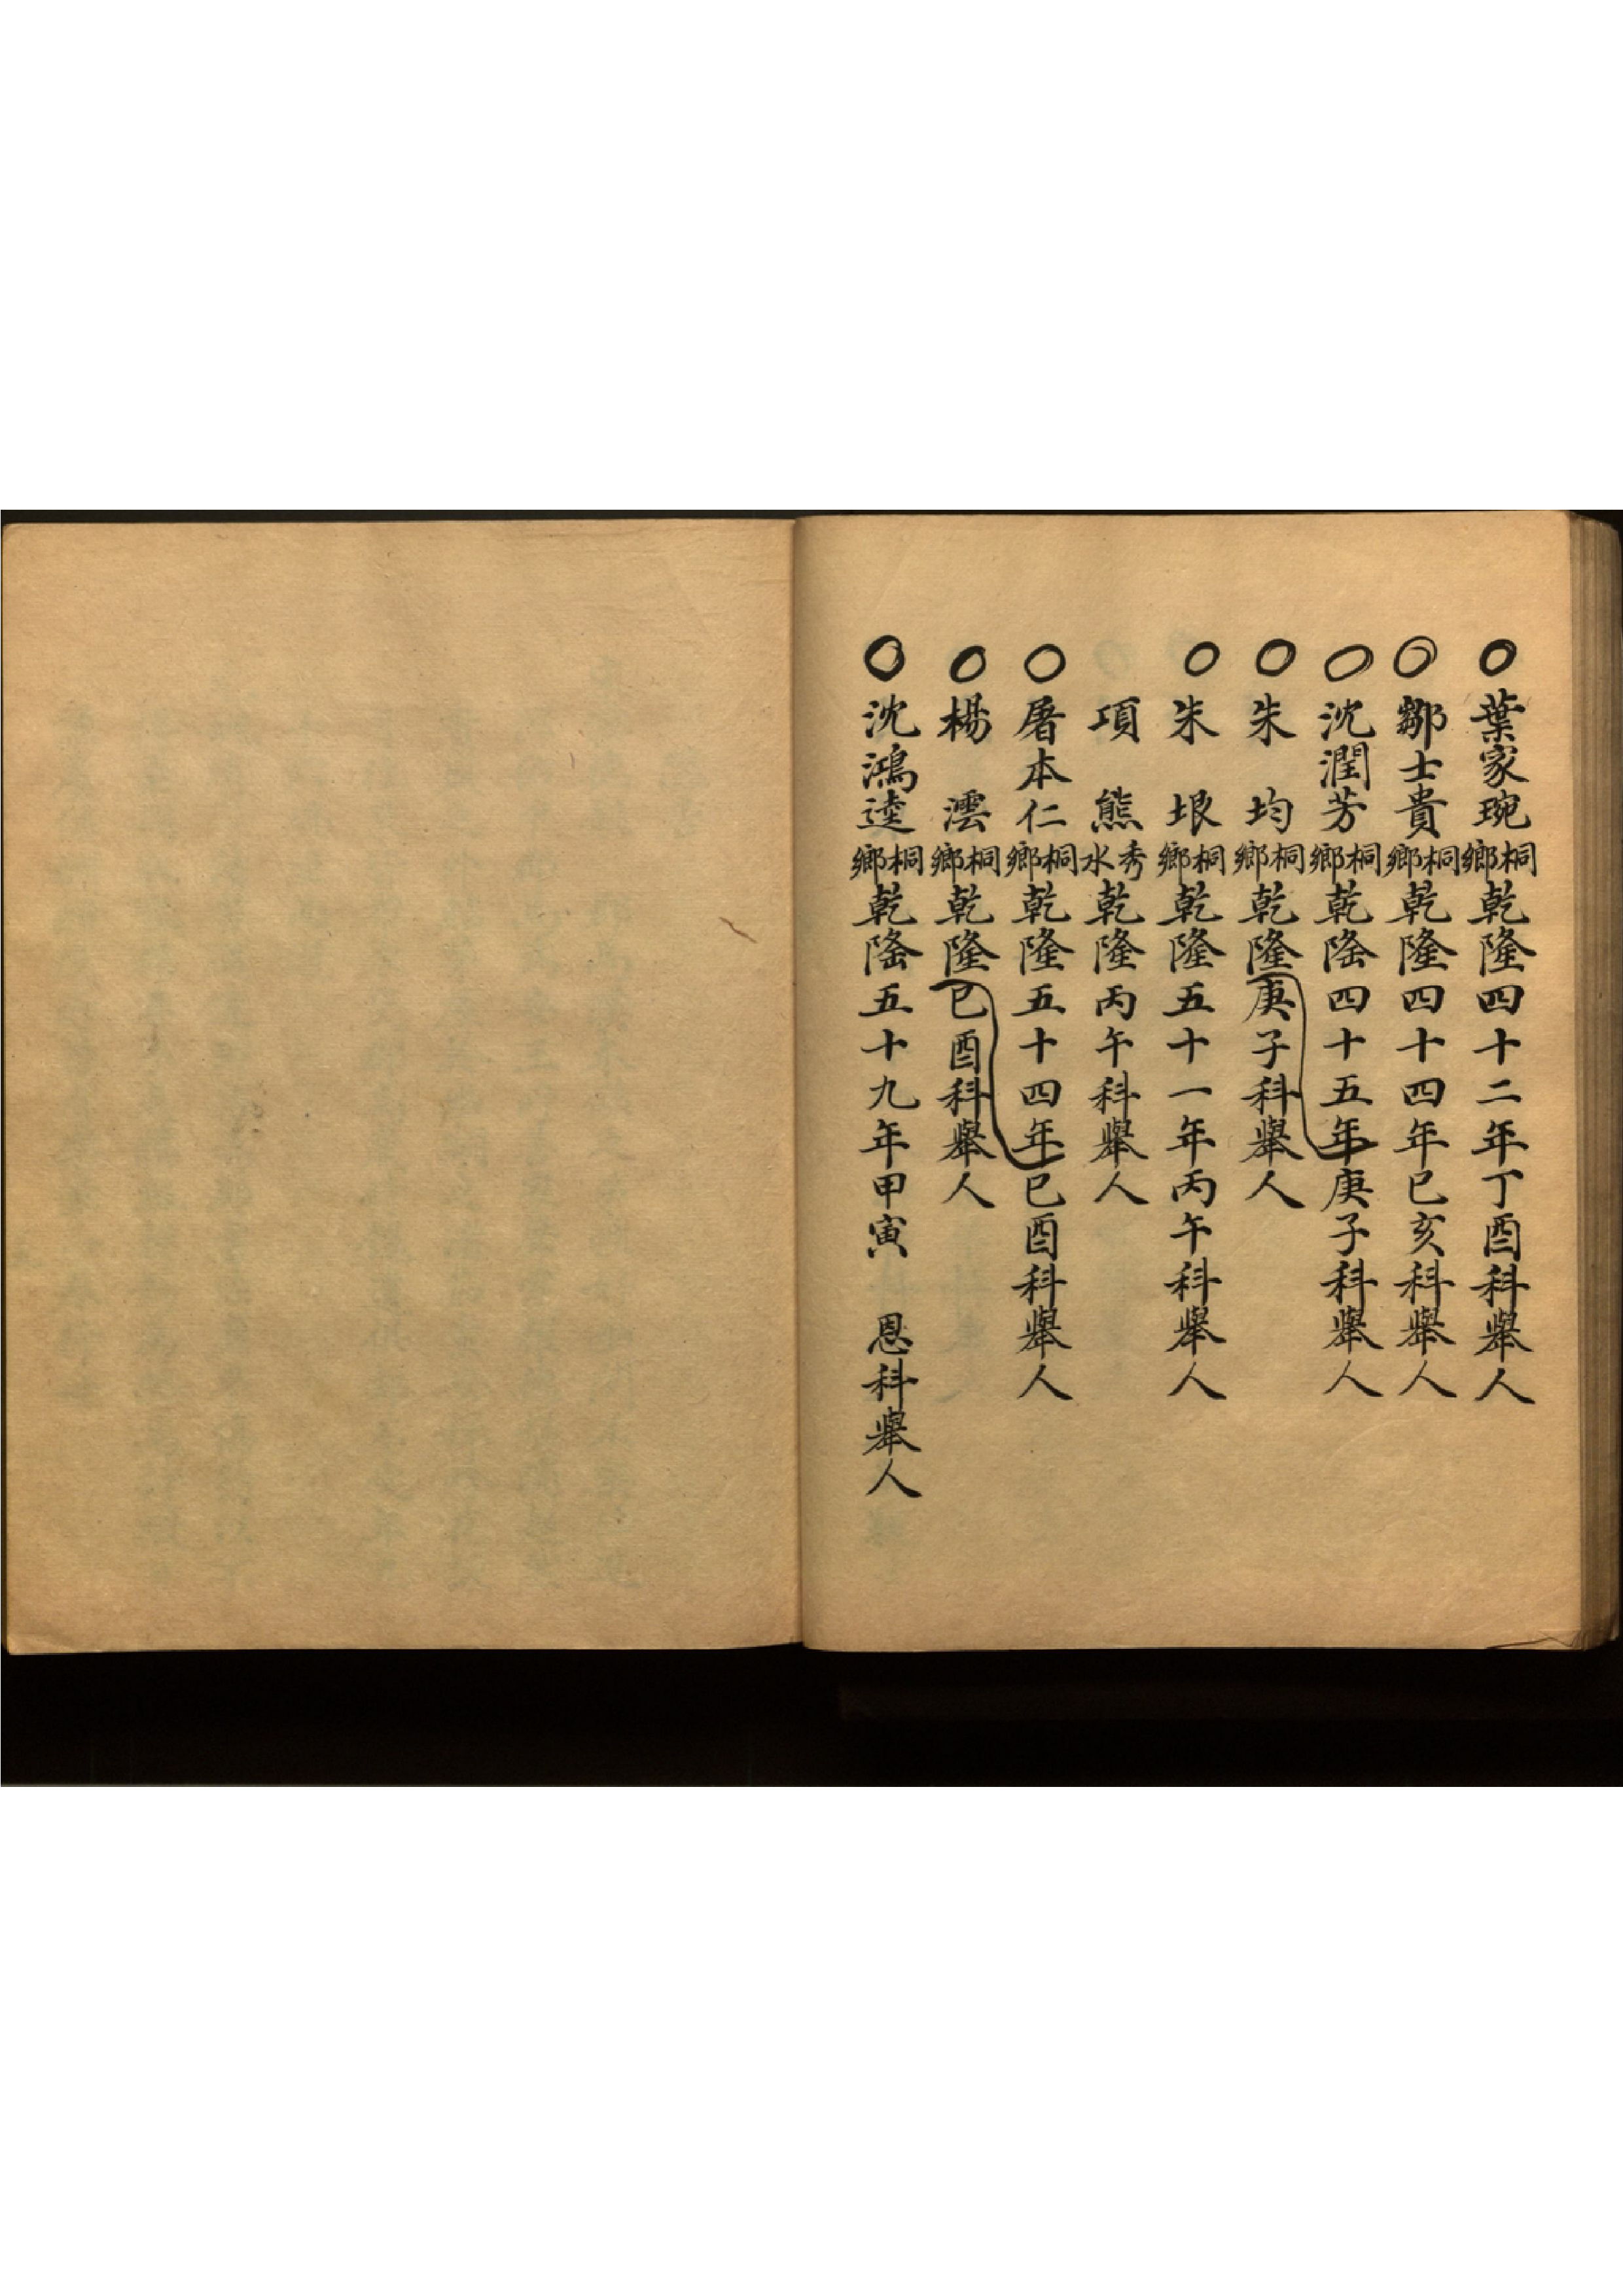 葉家琬桐鄉乾隆四十二年丁酉科舉人
鄒士貴桐鄉乾隆四十四年己亥科舉人
沈潤芳桐鄉乾隆四十五年庚子科舉人
朱 均桐鄉乾隆庚子科舉人
朱 垠桐鄉乾隆五十一年丙午科舉人
項 熊秀水乾隆丙午科舉人
屠本仁桐鄉乾隆五十四年己酉科舉人
楊 澐桐鄉乾隆己酉科舉人
沈鴻逵桐鄉乾隆五十九年甲寅 恩科舉人